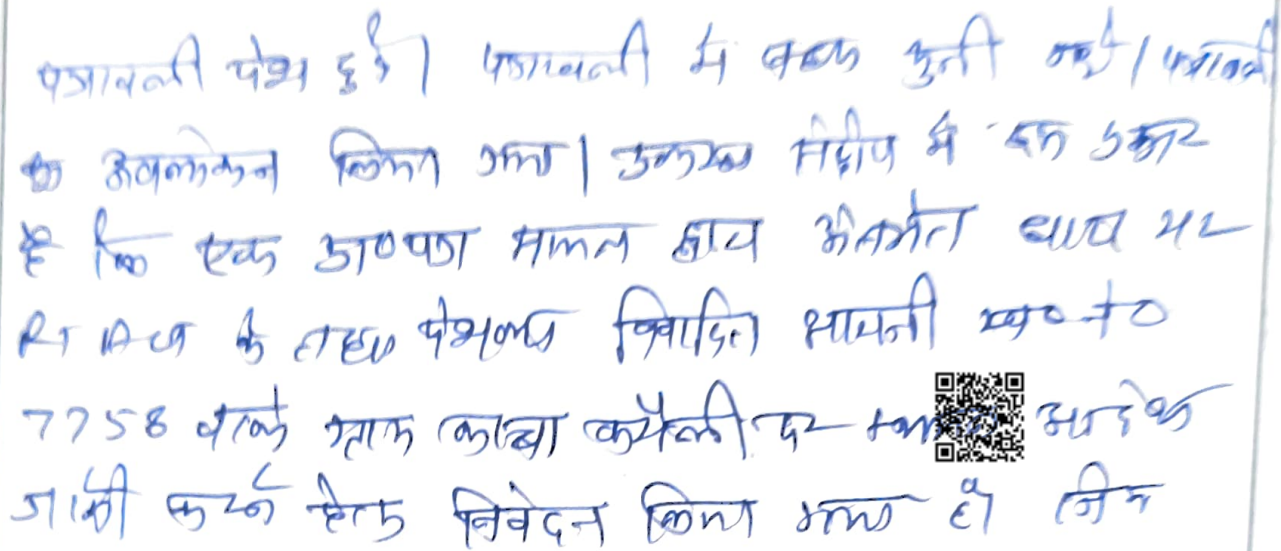 पत्रावली पेश हुई। पत्रावली में बहस सुनी गई। पत्रावली
का अवलोकन किया गया। प्रकरण संक्षेप में इस प्रकार
है कि एक प्रा०पत्र अन्तर्गत धारा
RT Act के तहत पेशकर विवादित आराजी ख०नं०
7758 वाके ग्राम पर आदेश
जारी करने हेतु निवेदन किया गया है। जिस